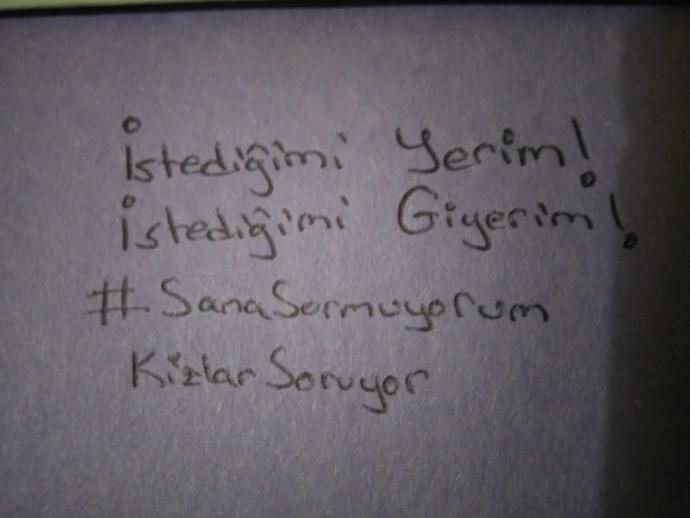 İstediğimi Yerim!
İstediğimi Giyerim!
#SanaSormuyorum
KizlarSoruyor